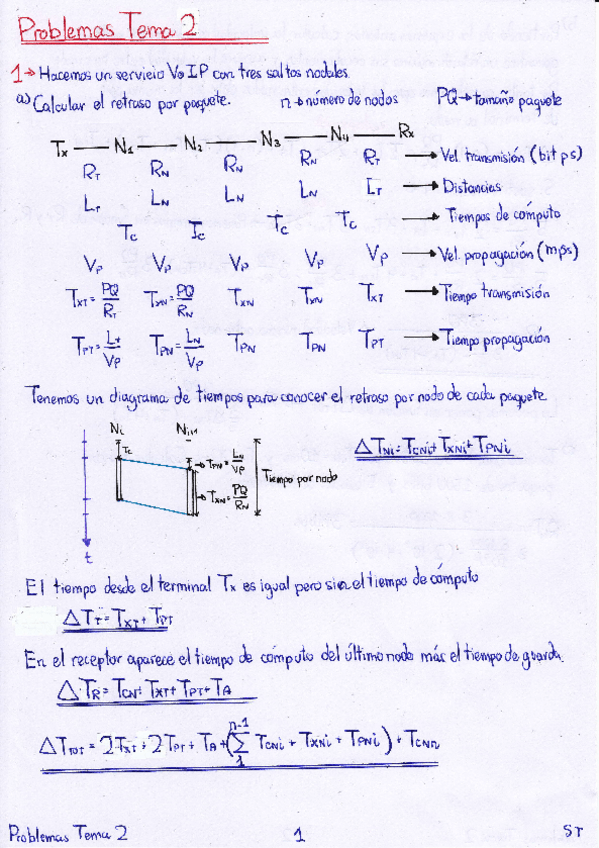 Problemas Tema 2
1→ Hacemos un servicio VoIP con tres saltos nodales.
a) Calcular el retraso por paquete. n→número de nodos PQ→tamaño paquete
Tx — N1 — N2 — N3 — N4 — Rx
RT RN RN RN RT → Vel. transmisión (bit ps)
LT LN LN LN LT → Distancias
Tc Tc Tc Tc → Tiempos de cómputo
Vp Vp Vp Vp Vp → Vel. propagación (mps)
TXT = PQ/RT TXN = PQ/RN TXN TXN TXT → Tiempo transmisión
TPT = Lt/Vp TPN = LN/Vp TPN TPN TPT → Tiempo propagación
Tenemos un diagrama de tiempos para conocer el retraso por nodo de cada paquete.
Ni Ni+1
Tc
TPN = LN/Vp
TXN = PQ/RN
Tiempo por nodo
t
ΔTNi = TCNi + TXNi + TPNi
El tiempo desde el terminal Tx es igual pero sin el tiempo de cómputo
ΔTT = TXT + TPT
En el receptor aparece el tiempo de cómputo del último nodo más el tiempo de guarda.
ΔTR = TCN + TXT + TPT + TA
ΔTTOT = 2TXT + 2TPT + TA + (∑ 1 n-1 TCNi + TXNi + TPNi) + TCNn
Problemas Tema 2 1 ST